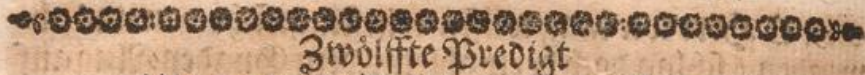 Zwölffte Predigt